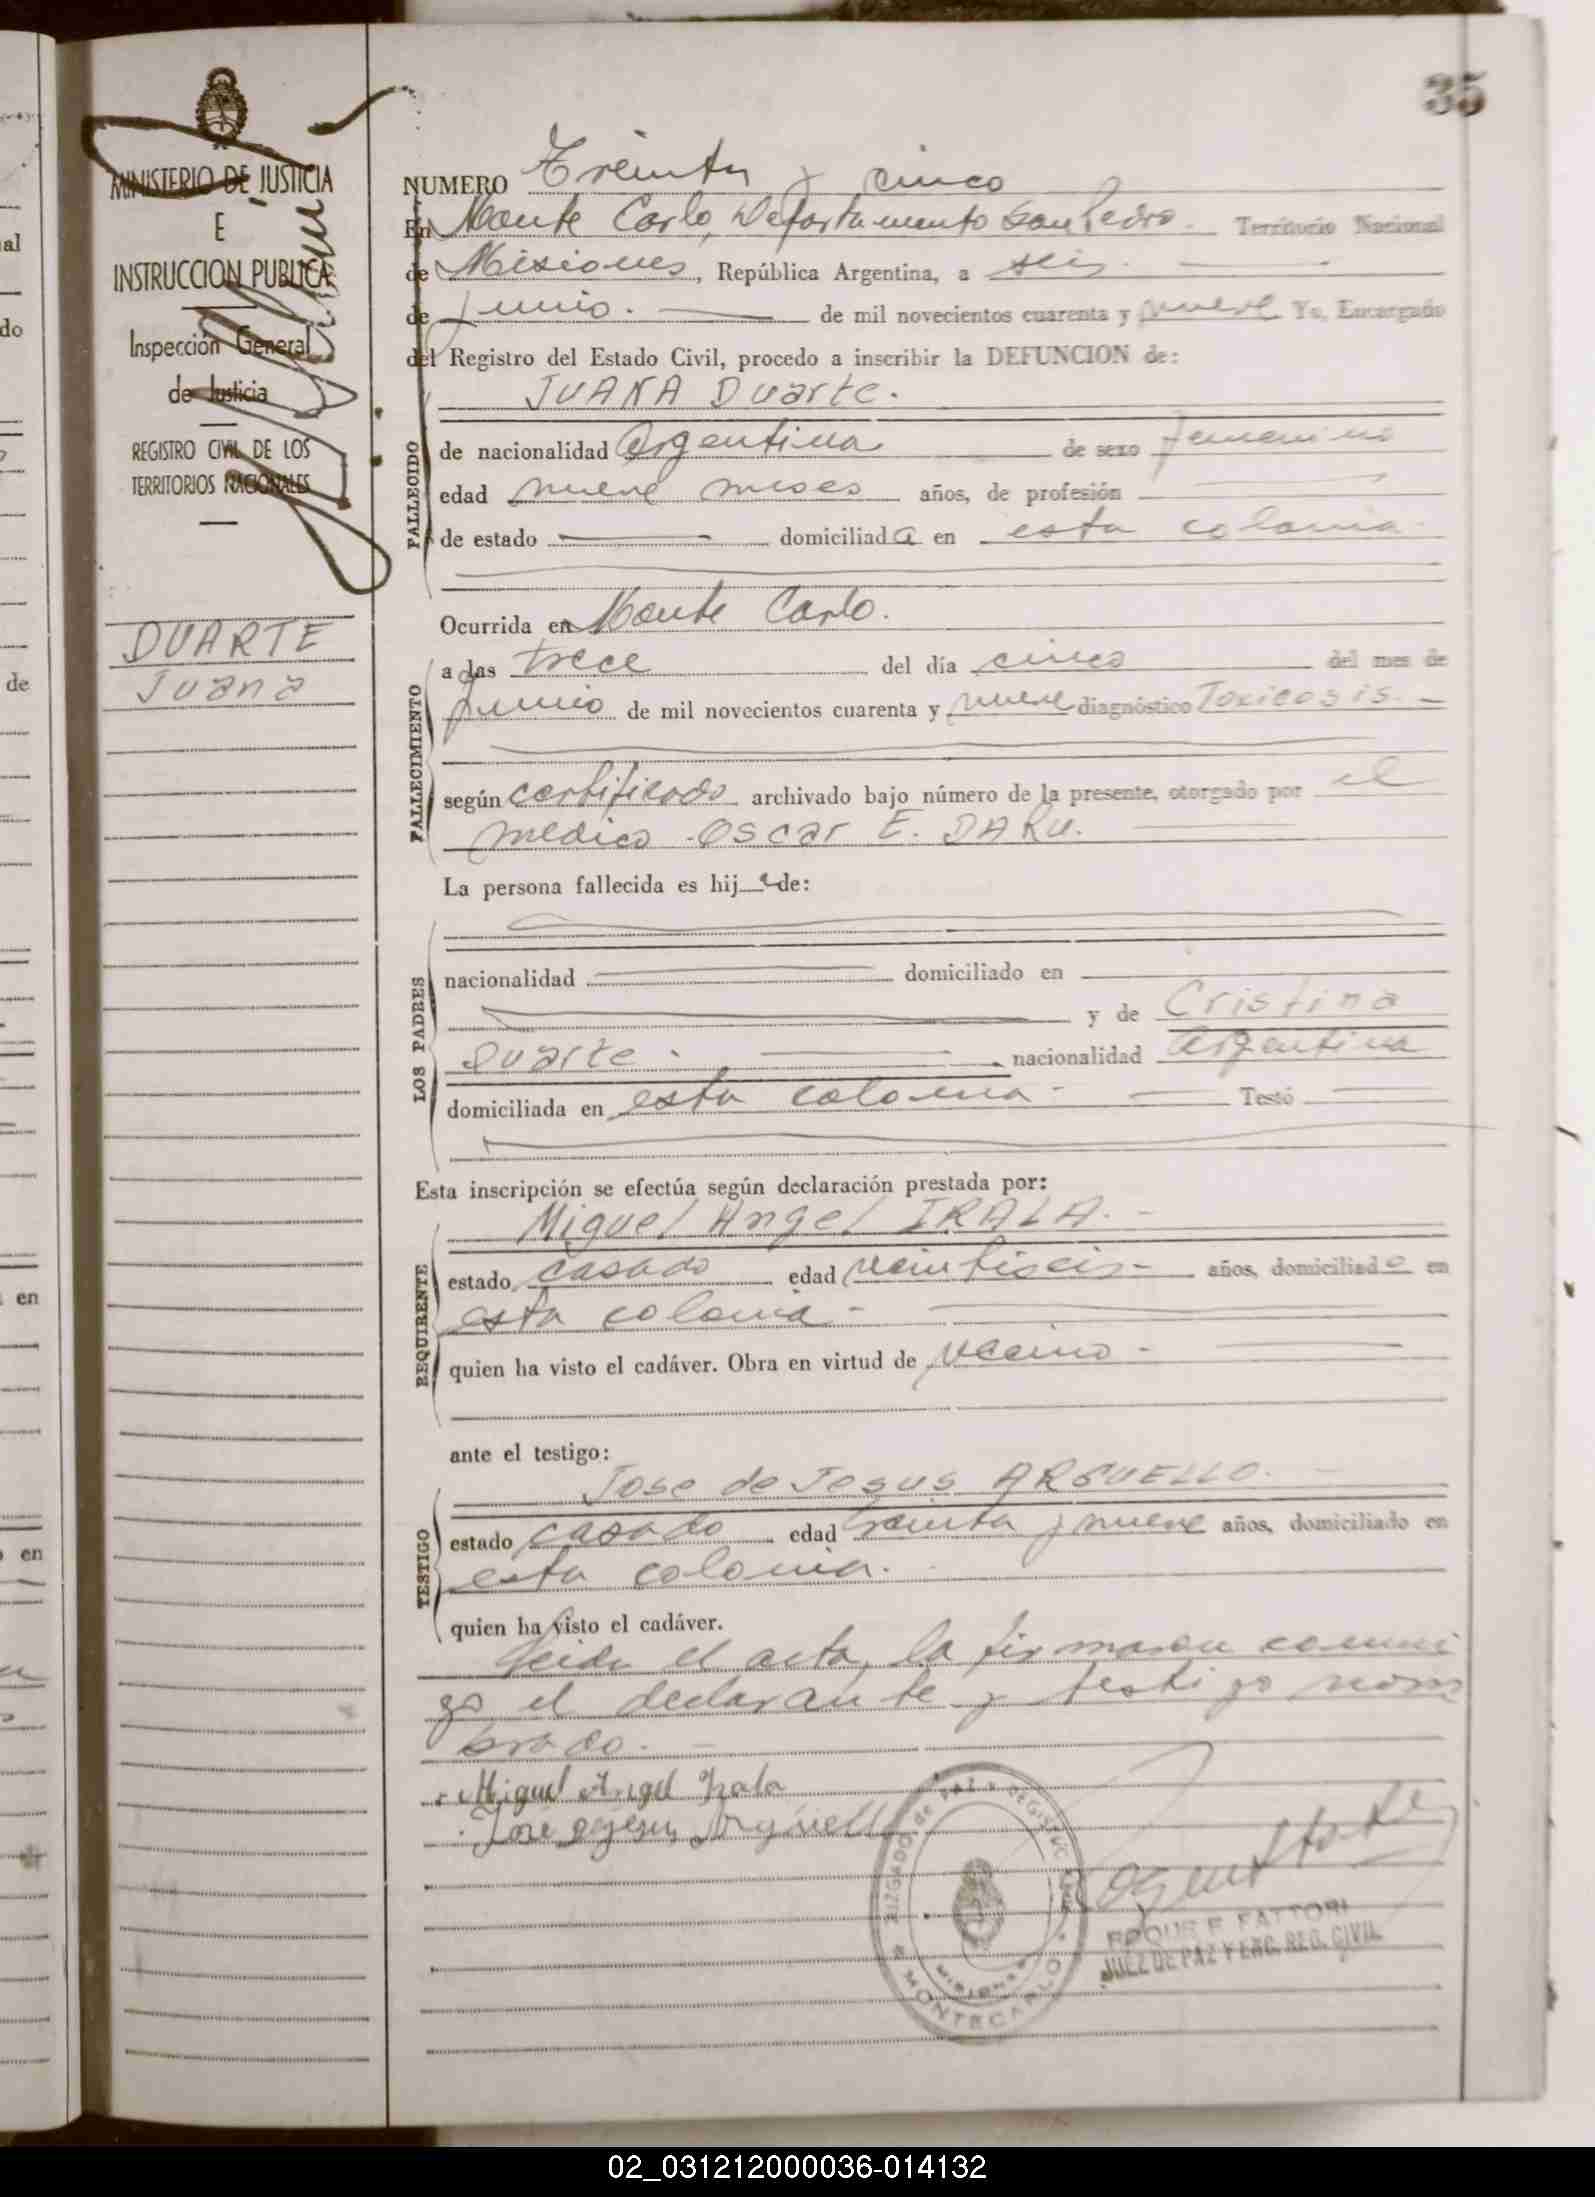 35
MINISTERIO DE JUSTICIA
E
INSTRUCCION PUBLICA
Inspección General
de Justicia
REGISTRO CIVIL DE LOS
TERRITORIOS NACIONALES
DUARTE
Juana
NUMERO Treinta y cinco
En Monte Carlo, Departamento San Pedro. Territorio Nacional
de Misiones, República Argentina, a seis
de junio. de mil novecientos cuarenta y nueve Yo, Encargado
del Registro del Estado Civil, procedo a inscribir la DEFUNCION de:
JUANA Duarte.
FALLECIDO
de nacionalidad Argentina de sexo femenino
edad nueve meses años, de profesión
de estado domiciliada en esta colonia
Ocurrida en Monte Carlo.
FALLECIMIENTO
a las trece del día cinco del mes de
junio de mil novecientos cuarenta y nueve diagnóstico Toxicosis.
según certificado archivado bajo número de la presente, otorgado por el
médico Oscar E. DARU.
La persona fallecida es hija de:
LOS PADRES
nacionalidad domiciliado en
y de Cristina
Duarte. nacionalidad Argentina
domiciliada en esta colonia Testó
Esta inscripción se efectúa según declaración prestada por:
Miguel Angel IRALA.
REQUIRENTE
estado casado edad veintiseis años, domiciliado en
esta colonia
quien ha visto el cadáver. Obra en virtud de vecino
ante el testigo:
Jose de Jesus ARGUELLO.
TESTIGO
estado casado edad treinta y nueve años, domiciliado en
esta colonia.
quien ha visto el cadáver.
Leida el acta, la firmaron conmi
go el declarante y testigo nom
brado.
Miguel Angel Irala
José dejesus Arguello
JUZGADO de PAZ y REGISTRO CIVIL
MISIONES
MONTECARLO
ROQUE F. FATTORI
JUEZ DE PAZ Y ENC. REG. CIVIL
02_031212000036-014132